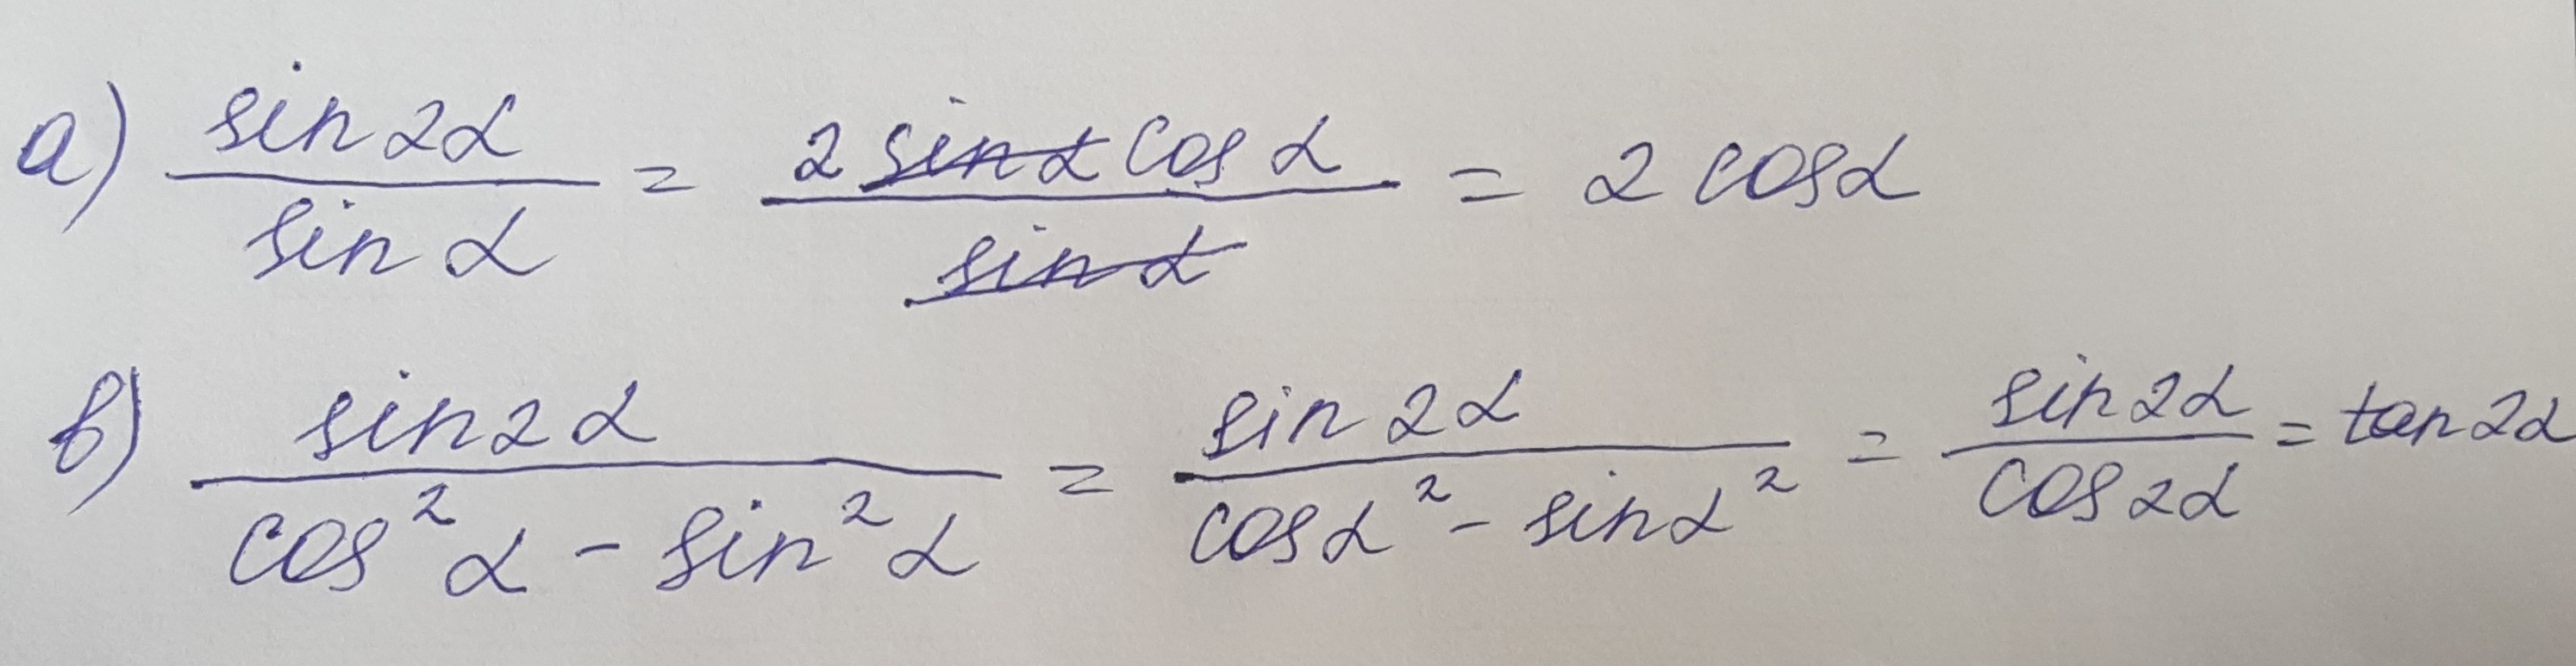 а) sin 2α / sin α = 2 sin α cos α / sin α = 2 cos α
в) sin 2α / cos² α - sin² α = sin 2α / cos α² - sin α² = sin 2α / cos 2α = tan 2α